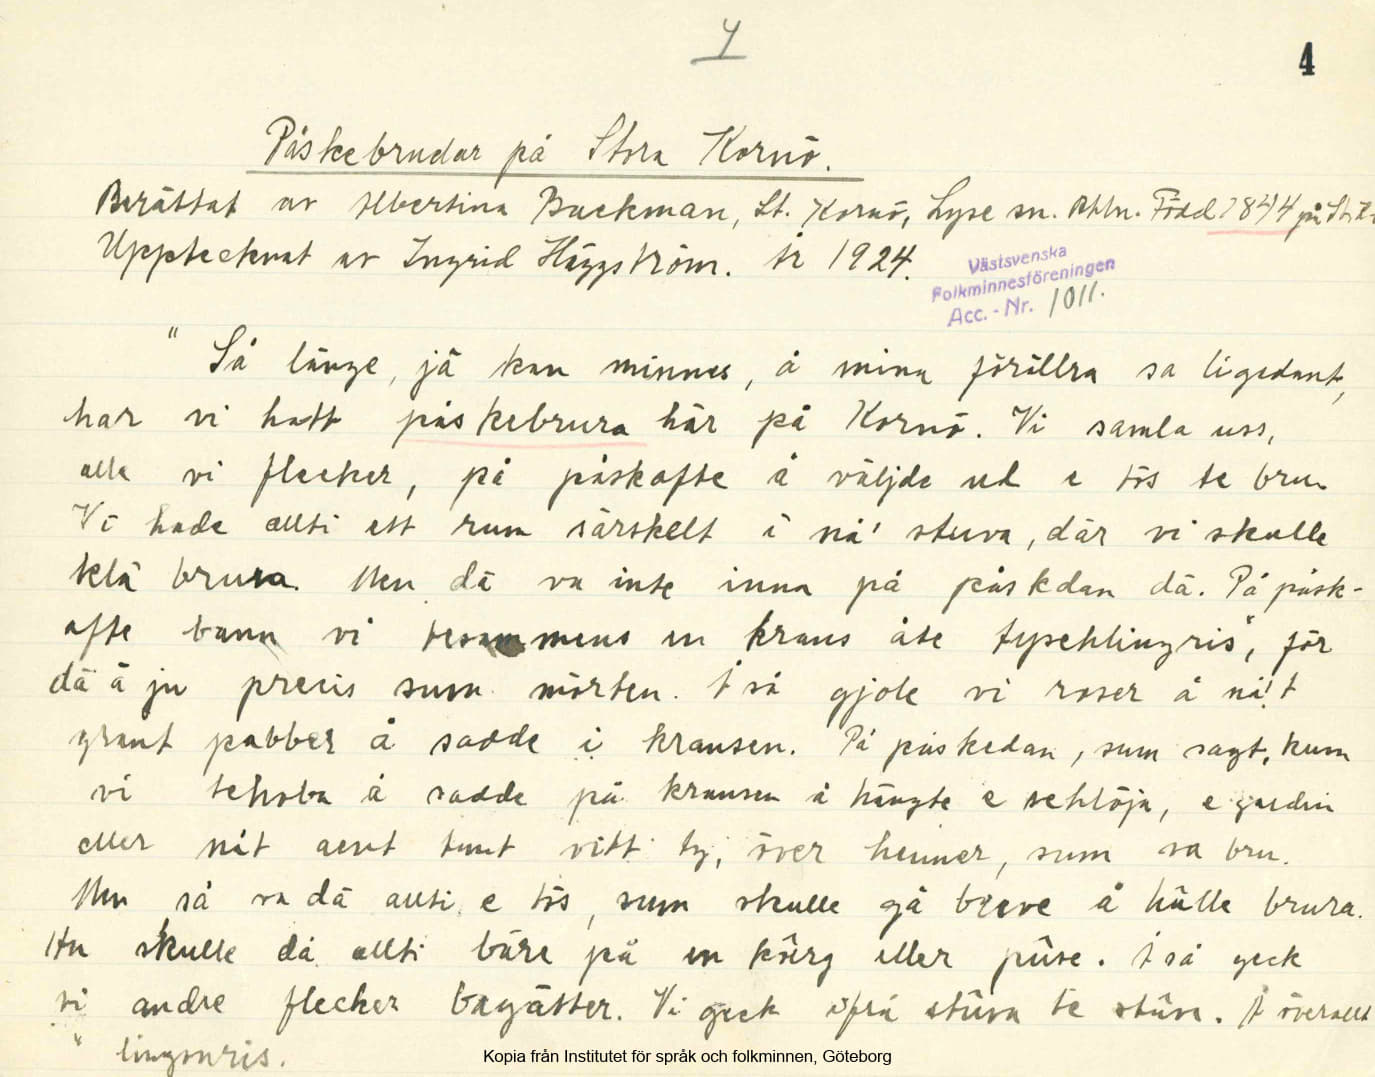 4
4
Påskebrudar på Stora Kornö.
Berättat av Albertina Backman, St. Kornö, Lyse sn. Bhln. Född 1844 på St. K
Upptecknat av Ingrid Häggström. År 1924.
Västsvenska
Folkminnesföreningen
Acc. - Nr. 1011.
" Så länge, jä kan minnes, å mina förällra sa ligedant,
har vi hatt påskebrura här på Kornö. Vi samla uss,
alle vi flecker, på påskafte å väljde ud e tös te bru
Vi hade allti ett rum särskelt i nå' stuva, där vi skulle
klä brura. Men dä va inte inna på påskdan dä. På påsk-
afte bann vi tesammens en krans åte tyschlingris", för
dä ä ju precis sum mörten. Å så gjole vi roser å nå't
grant pabber å sadde i kransen. På påskedan, sum sagt, kum
vi tehoba å sadde på kransen å hängte e schlöja, e gardin
eller nåt aent tunt vitt ty, över henner, sum va bru.
Men så va dä allti e tös, sum skulle gå breve å hålle brura.
Hu skulle då allti bäre på en körg eller püse. Å så geck
vi andre flecker bagätter. Vi geck ifrå stüva te stüva. Å överallt
" lingonris.
Kopia från Institutet för språk och folkminnen, Göteborg